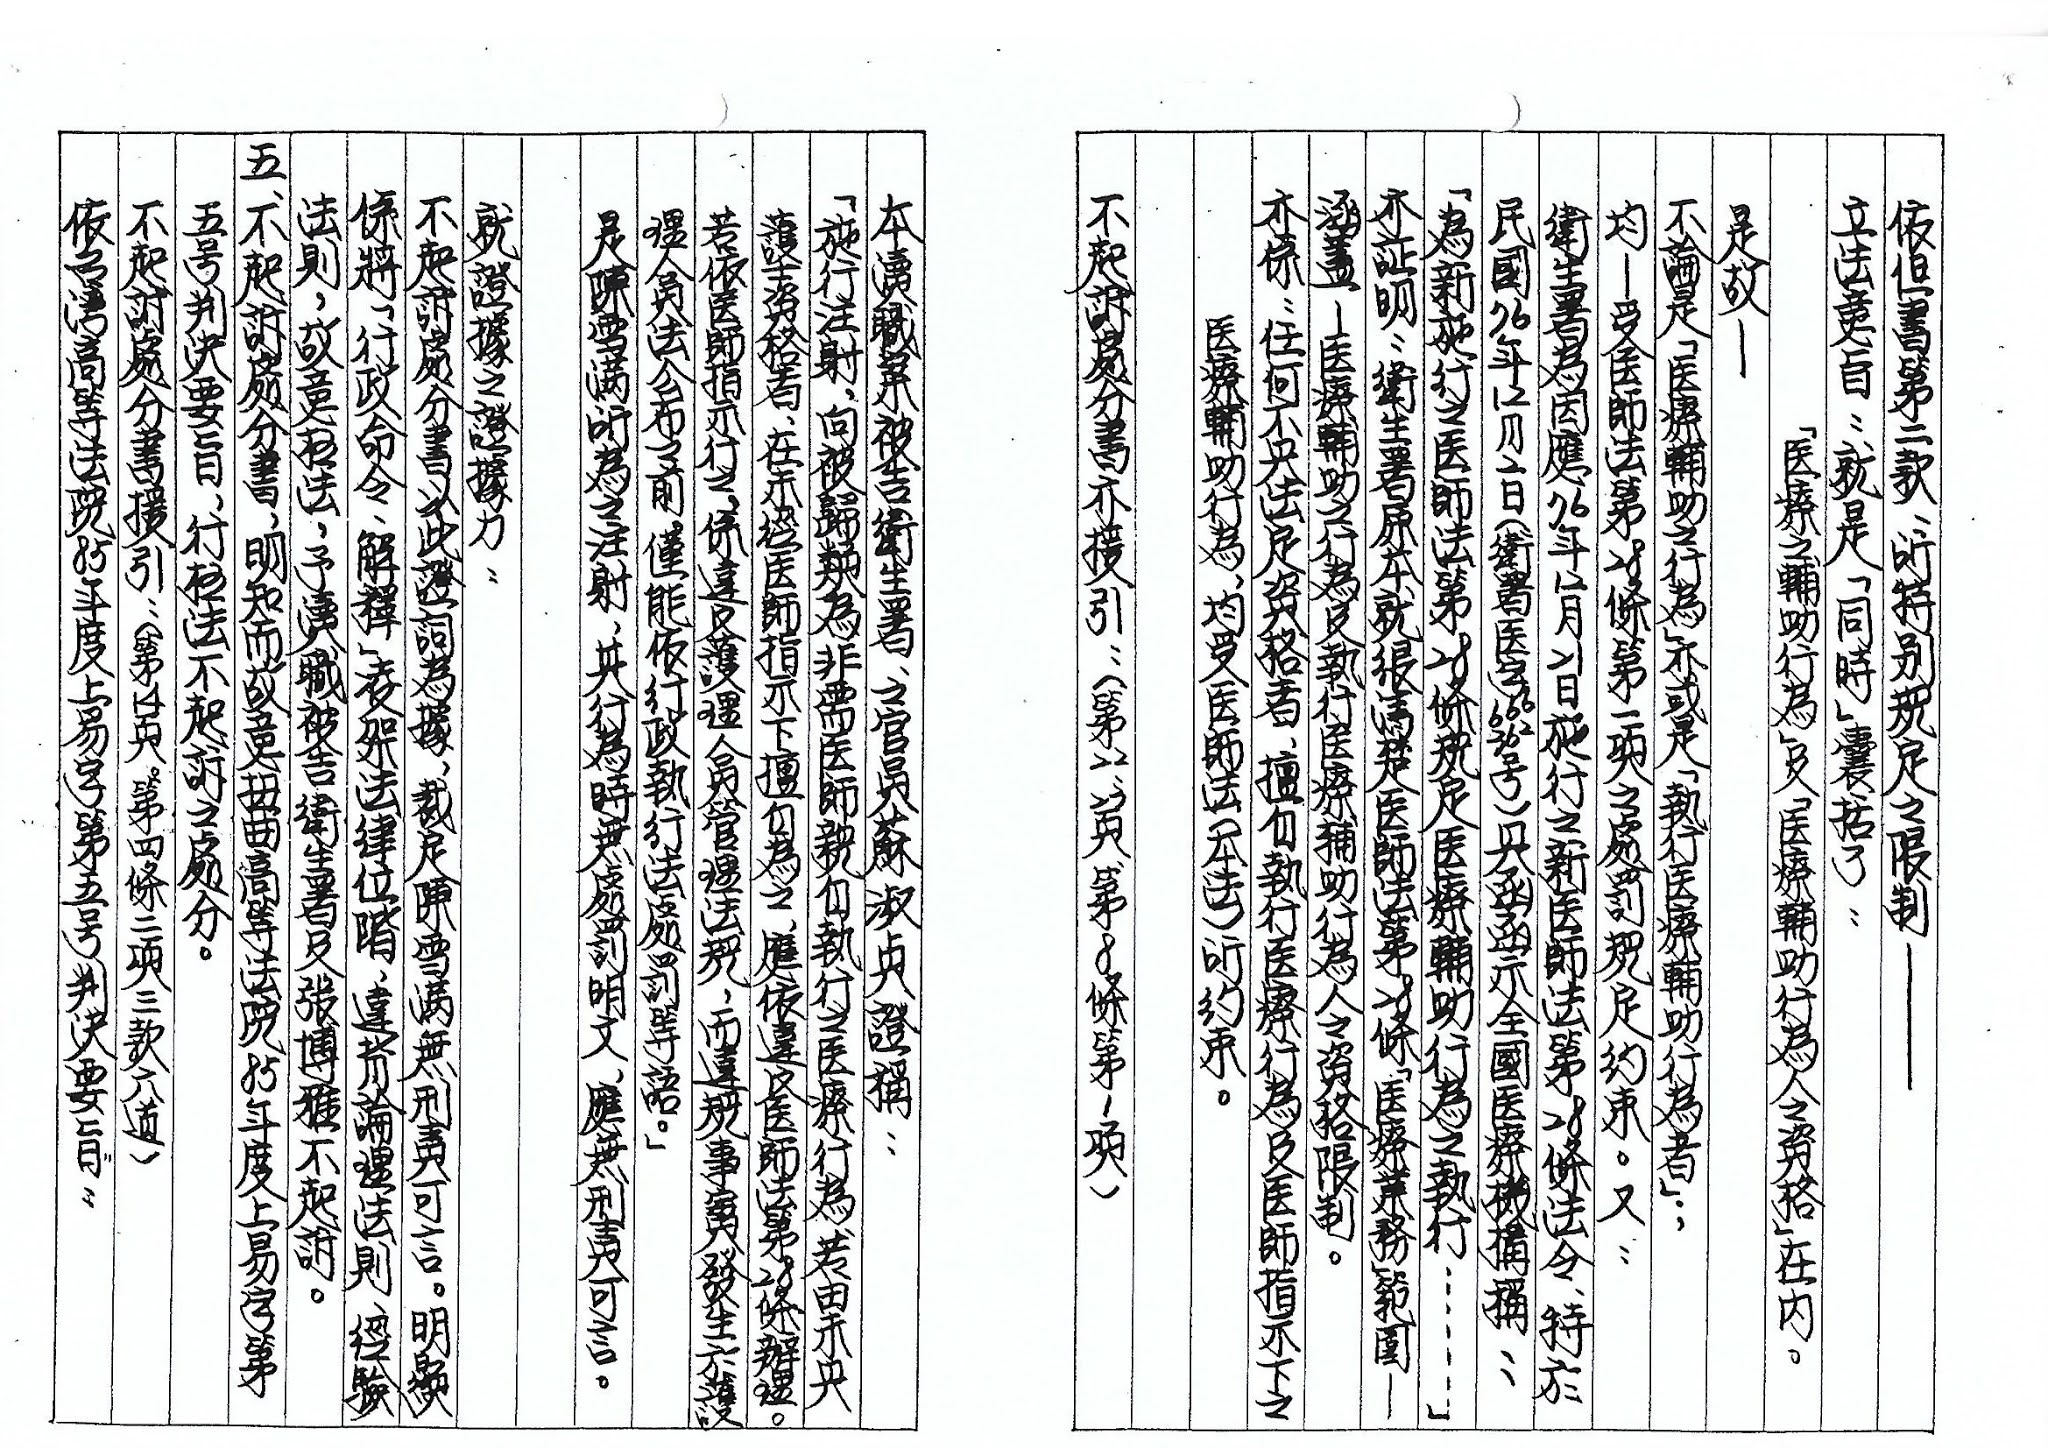 依但書第二款、所特別規定之限制——
立法意旨：就是「同時」囊括了：
「医療之輔助行為」及「医療輔助行為人之資格」在內。
是故—
不論是「医療輔助之行為」亦或是「執行医療輔助行為者」；
均—受医師法第28條第一項之處罰規定約束。又：
衛生署為因應76年12月21日施行之新医師法第28條法令、特於
民國76年12月2日（衛署医字666262号）具函函示全國医療機構稱：
「為新施行之医師法第28條規定医療輔助行為之執行………」
亦証明：衛生署原本就很清楚医師法第28條「医療業務」範圍—
涵蓋—医療輔助之行為及執行医療辅助行為人之資格限制。
亦係：任何不具法定資格者、擅自執行医療行為及医師指示下之
医療輔助行為、均受医師法（本法）所約束。
不起訴處分書亦援引：（第22、23頁、第8條第一項）
本瀆職案被告衛生署、之官員蘇淑貞證稱：
「施行注射，向被歸類為非需医師親自執行之医療行為、若由未具
護士資格者、在未經医師指示下擅自為之、應依違反医師法第28條辦理。
若依医師指示行之，係違反護理人員管理法規，而違規事實發生於護
理人員法公布之前，僅能依行政執行法處罰等語。」
是陳雪滿所為之注射，其行為時無處罰明文、應無刑責可言。
就證據之證據力：
不起訴處分書以此證詞為據，裁定陳雪滿無刑責可言。明顯
係將「行政命令、解釋」表架法律位階，違背論理法則、經驗
法則，故意枉法，予瀆職被告衛生署及張博雅不起訴。
五、不起訴處分書，明知而故意扭曲高等法院85年度上易字第
五号判決要旨，行枉法不起訴之處分。
不起訴處分書援引：（第14頁。第四條二項三款六道）
依台灣高等法院85年度上易字第五号判決要旨：